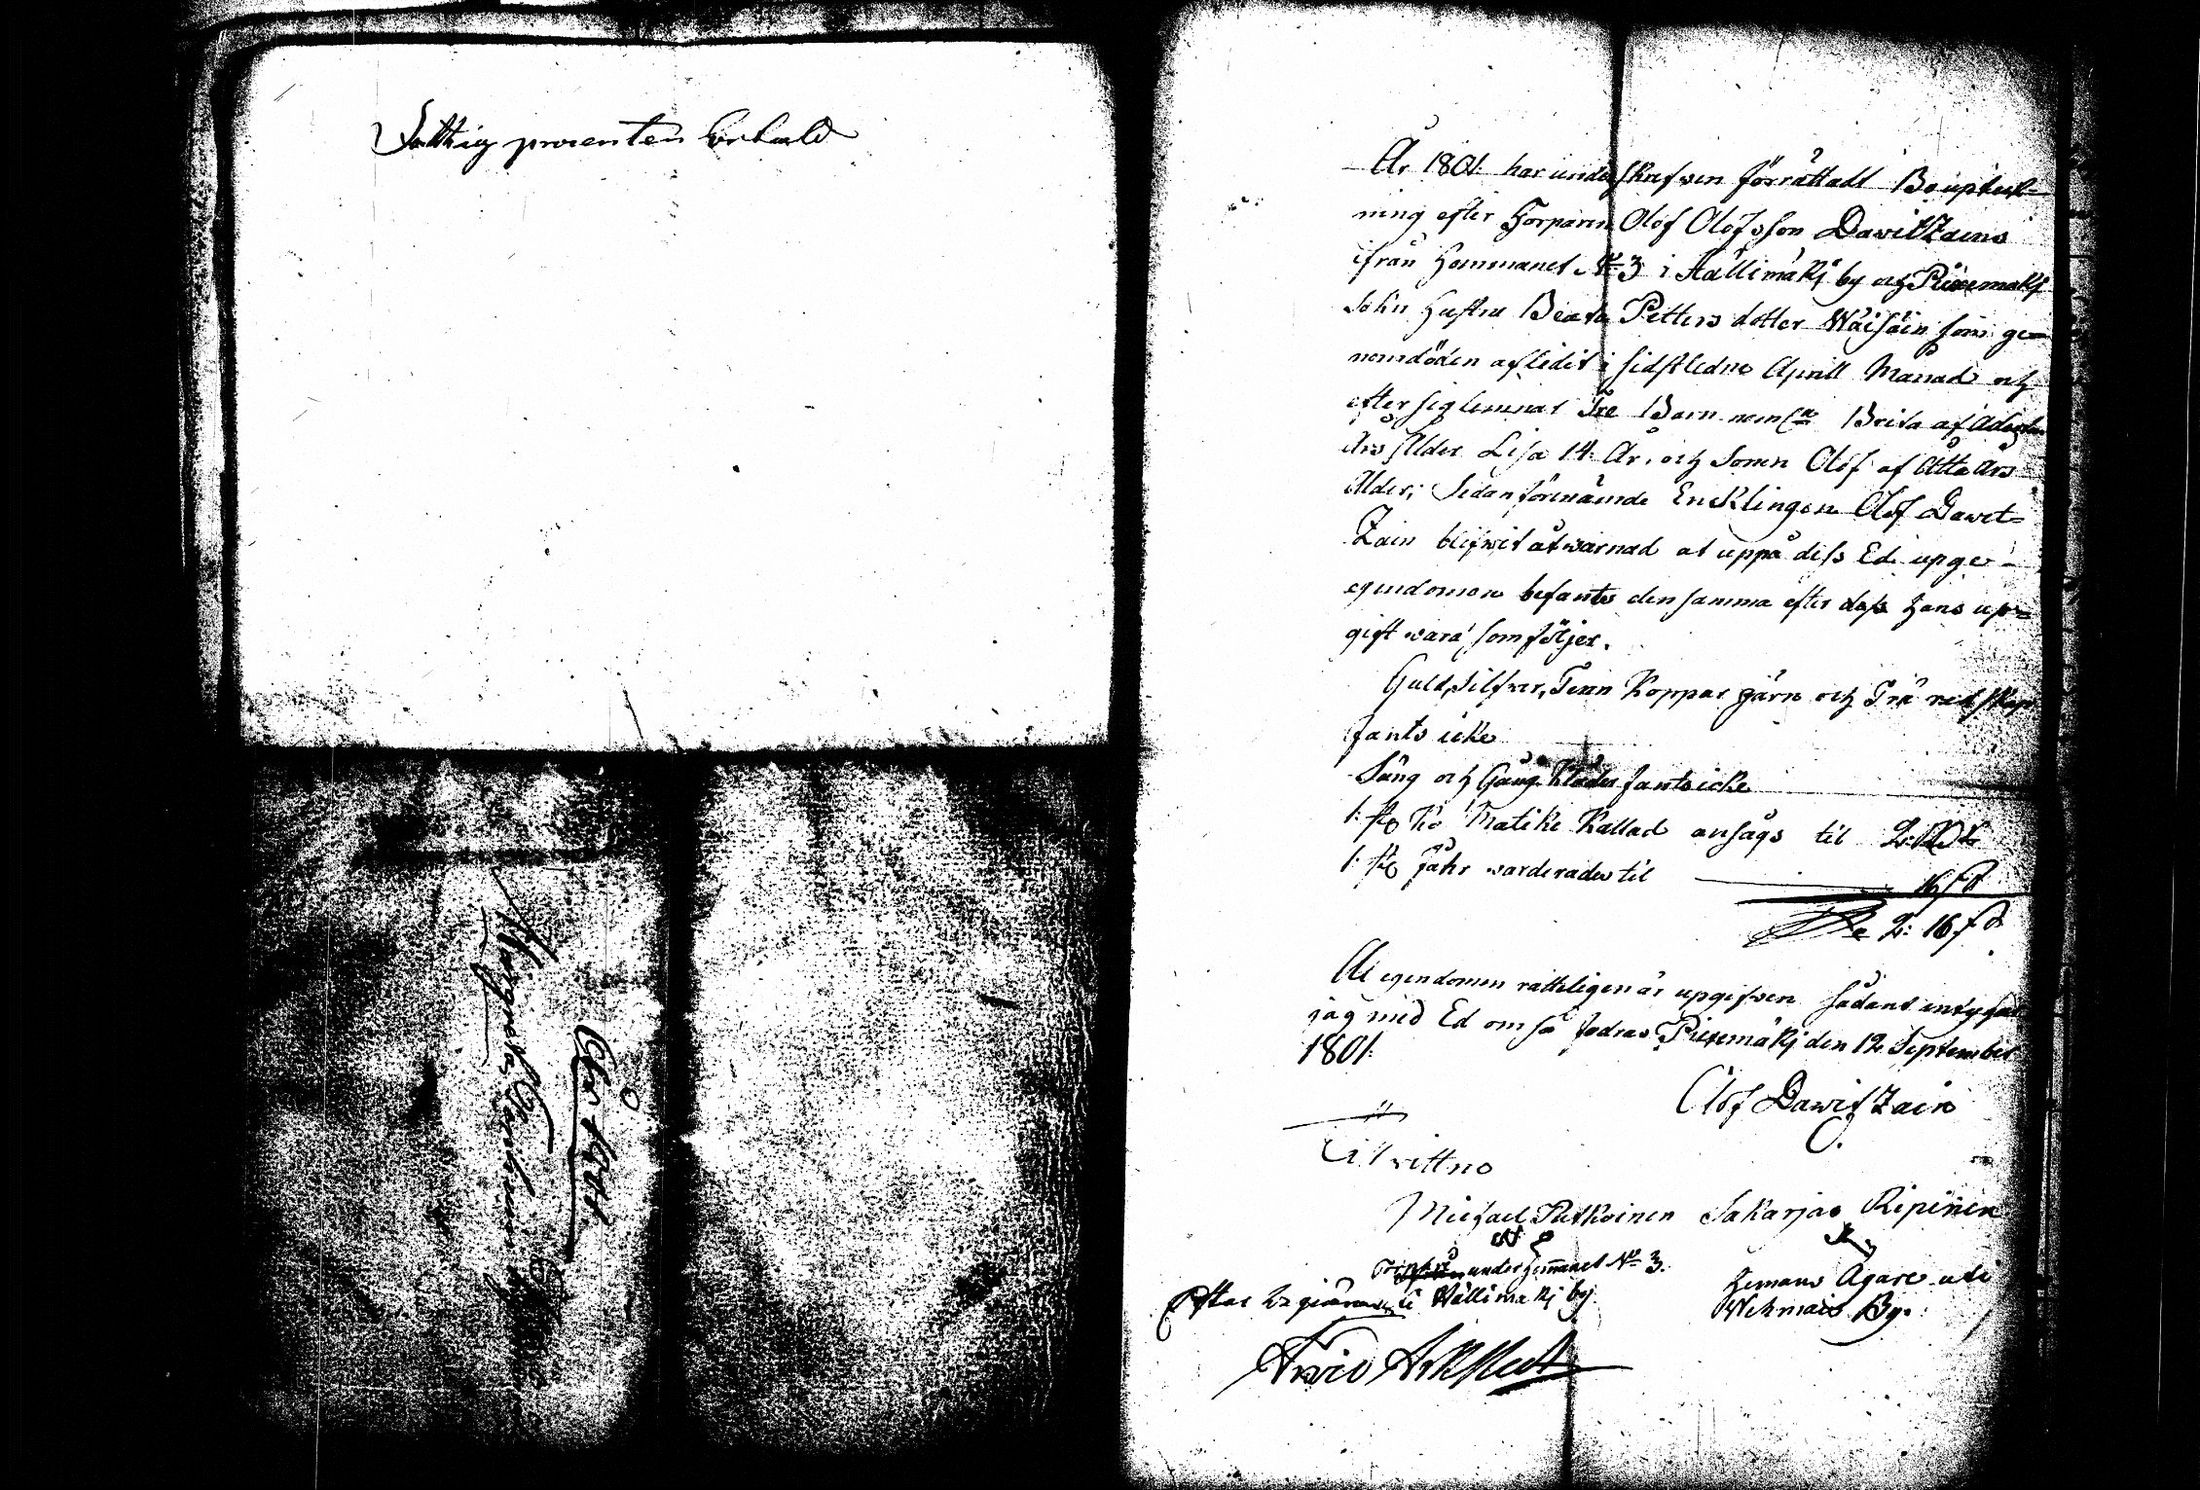 Fattig procenten behåld
År 1801. har underskrefven förrättadt Bouptek-
ning efter Torparen Olof Olofsson Dawitzains
ifrån Hemmanet N:o 3 i Hällimäkj by och Piexemäkj
Sokn Hustru Beata Petters dotter Wäisäin som ge-
nom döden aflidit i sidstledne Aprill Månad och
efter sig lemnat Tre Barn neml:n Brita af Aderton
Års Ålder Lisa 14. År, och Sonen Olof af Åtta Års
Ålder; Sedan förenämde Encklingen Olof Dawit-
Zain blifwit åtwarnad at uppå diss Ed upge
egendomen befants densamma efter dess Hans up-
gift wara som följer.
Guld, Silfwer, Tenn Koppar Järn och Trä redskap
fants icke
Säng och Gång Kläder fants icke
1. st Ko Matike Kallad ansågs til 2: RD
1. st Fåhr warderades til 16 s
2: 16 s
At egendomen rätteligen är upgifven sådant intygar
jag med Ed om så fodras Piexemäkj den 12 September
1801.
Olof Dawitzain
Til wittne
Michael Putkoinen Sakarjas Ripinen
under Hemmanet N:o 3.
i Hällimäkj by
Hemans Ägare uti
Wehmais By.
Efter begiäran
Margreta
År 1801